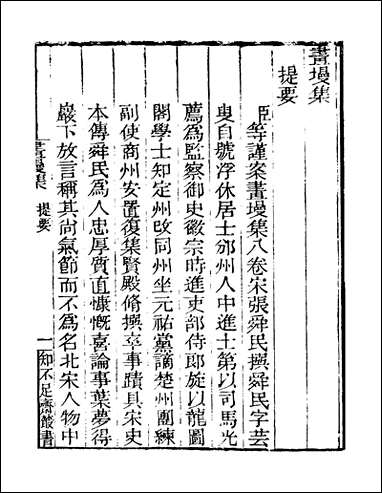 畫墁集
提要
臣等謹案畫墁集八卷宋張舜民撰舜民字芸
叟自號浮休居士邠州人中進士第以司馬光
薦為監察御史徽宗時進吏部侍郎旋以龍圖
閣學士知定州改同州坐元祐黨謫楚州團練
副使商州安置復集賢殿脩撰卒事蹟具宋史
本傳舜民為人忠厚質直慷慨喜論事葉夢得
巖下放言稱其尚氣節而不為名北宋人物中
畫墁集 提要
一 知不足齋叢書